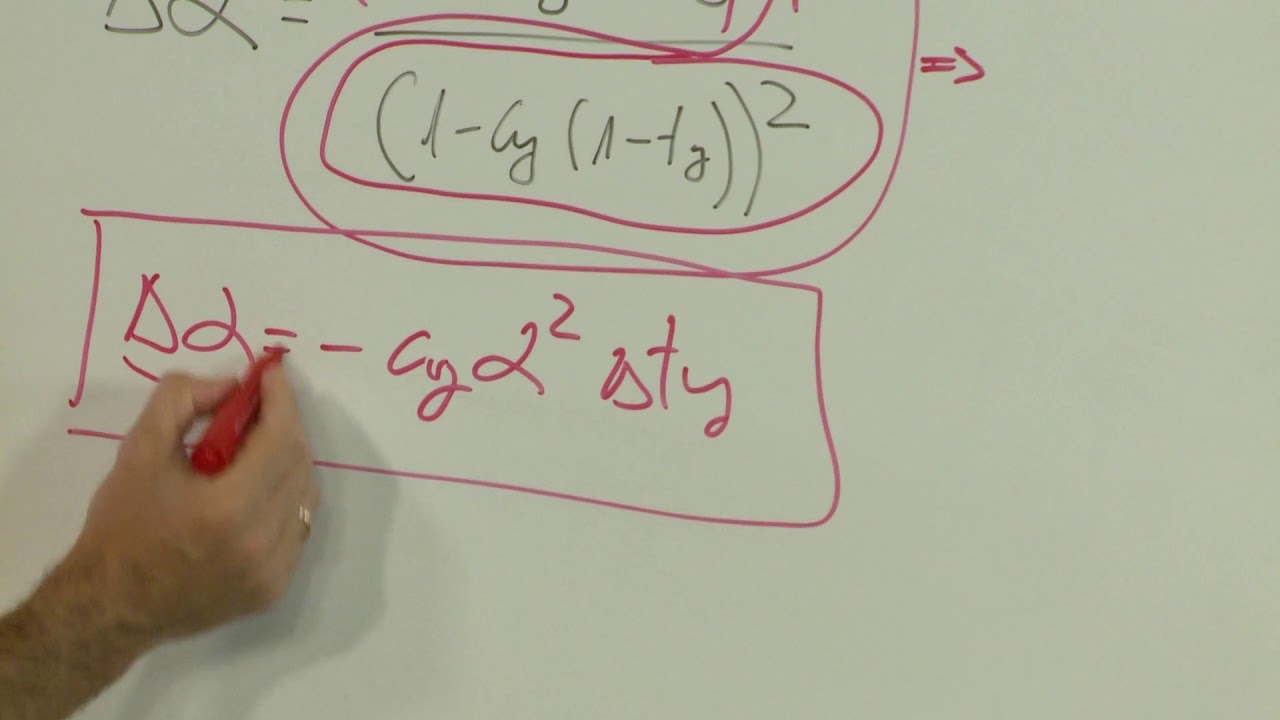 Δα =
(1 - cy (1 - ty))² =>
Δα = - cy α² Δty